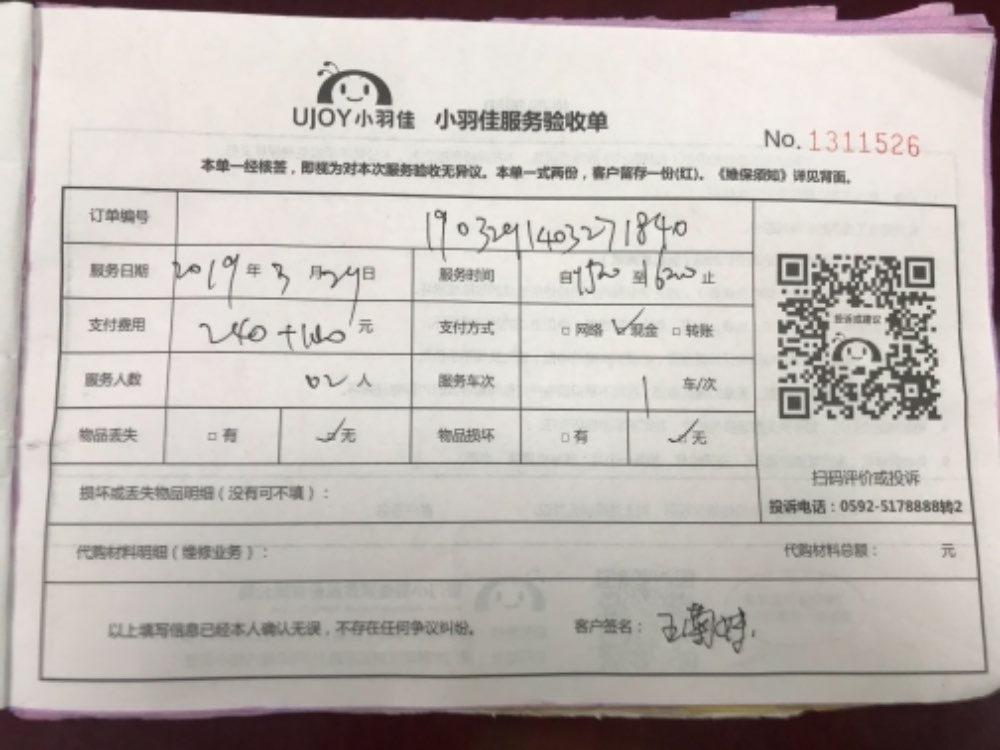 UJOY小羽佳 小羽佳服务验收单
No. 1311526
本单一经核签，即视为对本次服务验收无异议。本单一式两份，客户留存一份(红)。《维保须知》详见背面。
订单编号 1903291403271840
服务日期 2019年3月29日 服务时间 自1520至1620止
支付费用 240+140元 支付方式 □网络 ☑现金 □转账
投诉或建议
服务人数 02人 服务车次 1 车/次
物品丢失 □有 ☑无 物品损坏 □有 ☑无
扫码评价或投诉
损坏或丢失物品明细（没有可不填）：
投诉电话：0592-5178888转2
代购材料明细（维修业务）： 代购材料总额： 元
以上填写信息已经本人确认无误，不存在任何争议纠纷。 客户签名：王